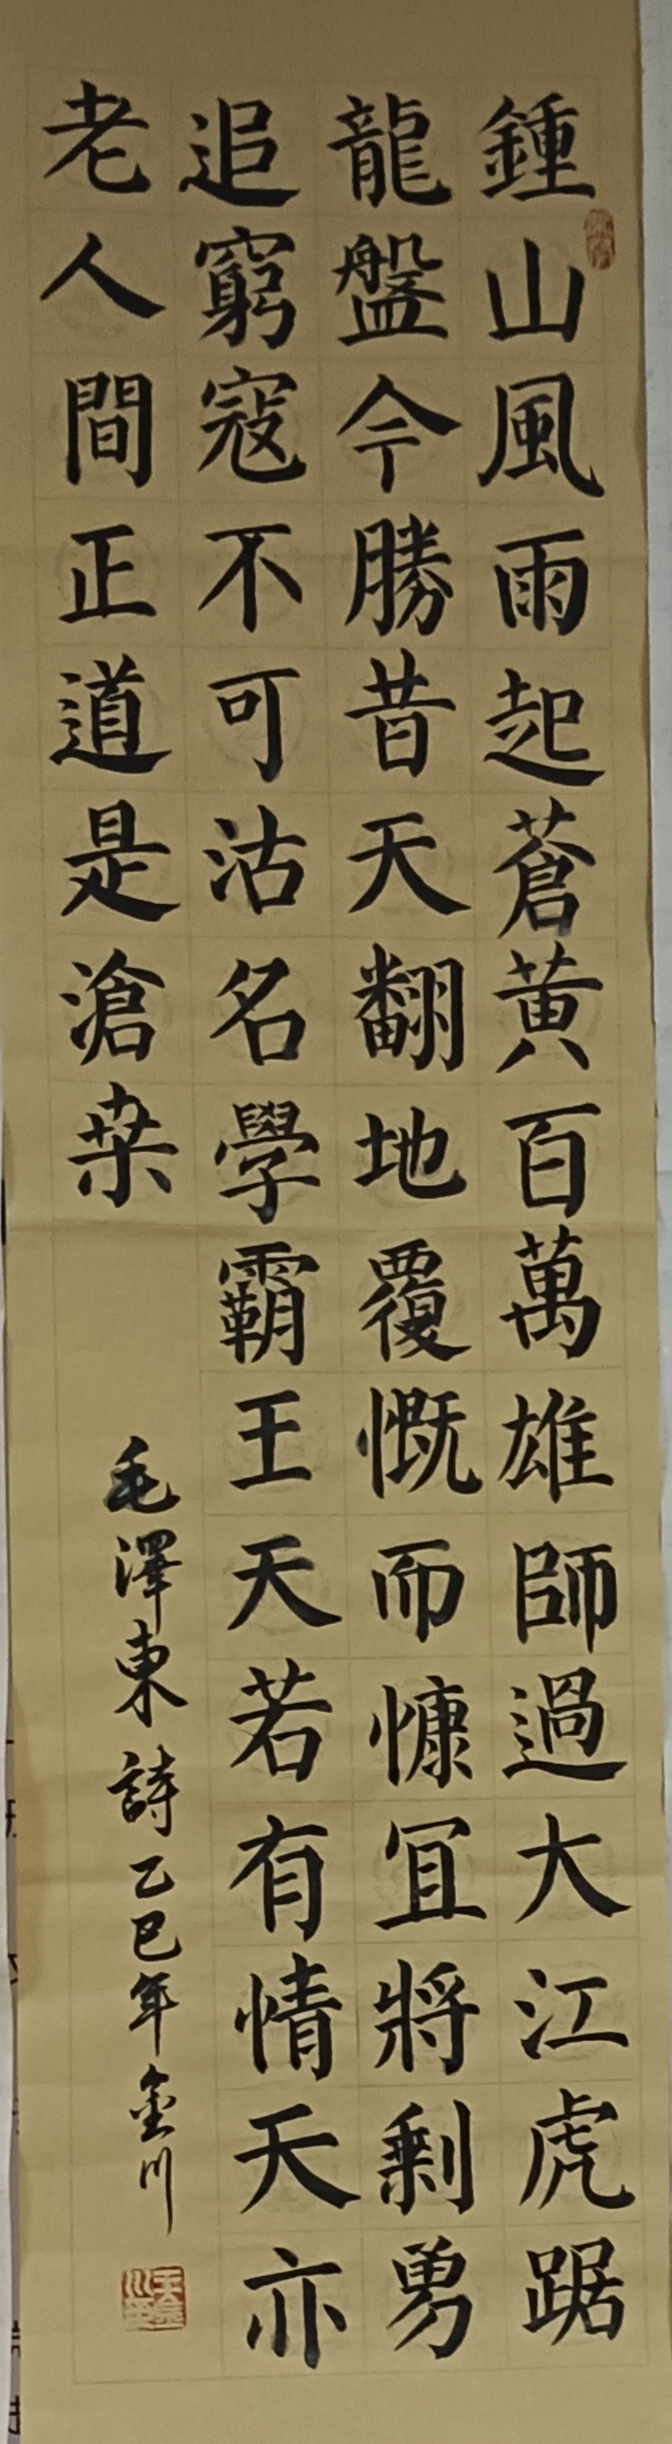 鍾山風雨起蒼黃百萬雄師過大江虎踞
龍盤今勝昔天翻地覆慨而慷宜將剩勇
追窮寇不可沽名學霸王天若有情天亦
老人間正道是滄桑
毛澤東詩乙巳年金川